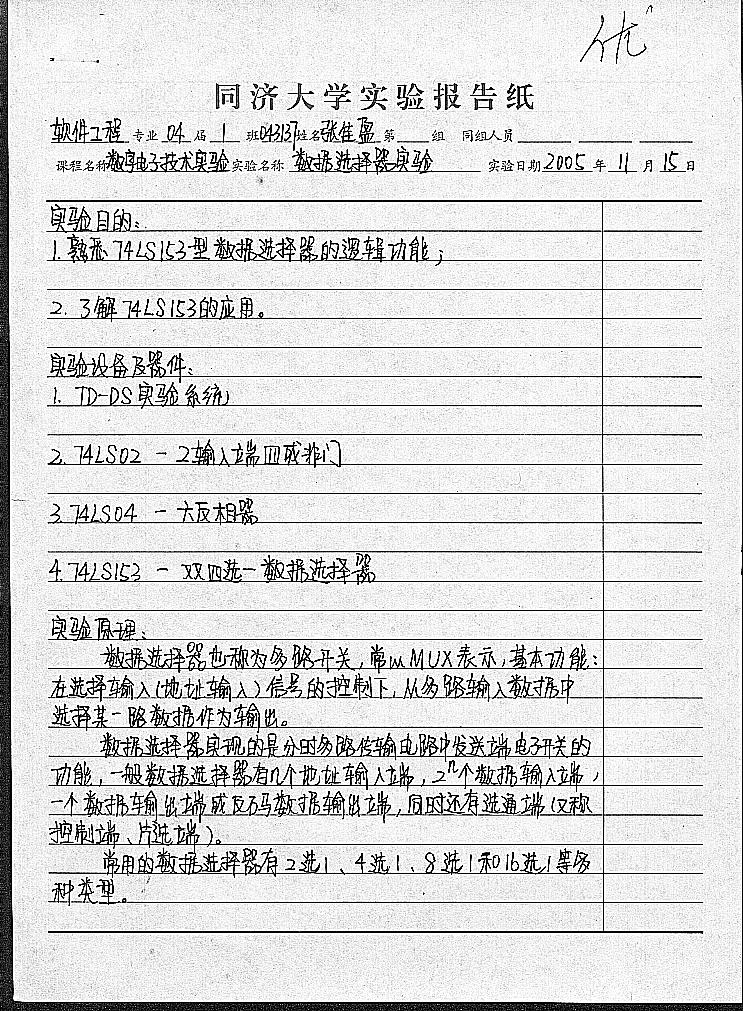 优
同济大学实验报告纸
软件工程 专业 04 届 1 班 043137 姓名 张佳盈 第 组 同组人员
课程名称 数字电子技术实验 实验名称 数据选择器实验 实验日期 2005 年 11 月 15 日
实验目的：
1. 熟悉74LS153型数据选择器的逻辑功能；
2. 了解74LS153的应用。
实验设备及器件：
1. TD-DS实验系统
2. 74LS02 － 2输入端四或非门
3. 74LS04 － 六反相器
4. 74LS153 － 双四选一数据选择器
实验原理：
数据选择器也称为多路开关，常以MUX表示，基本功能：
在选择输入（地址输入）信号的控制下，从多路输入数据中
选择某一路数据作为输出。
数据选择器实现的是分时多路传输电路中发送端电子开关的
功能，一般数据选择器有n个地址输入端，2ⁿ个数据输入端，
一个数据输出端或反码数据输出端，同时还有选通端（又称
控制端、片选端）。
常用的数据选择器有2选1、4选1、8选1和16选1等多
种类型。